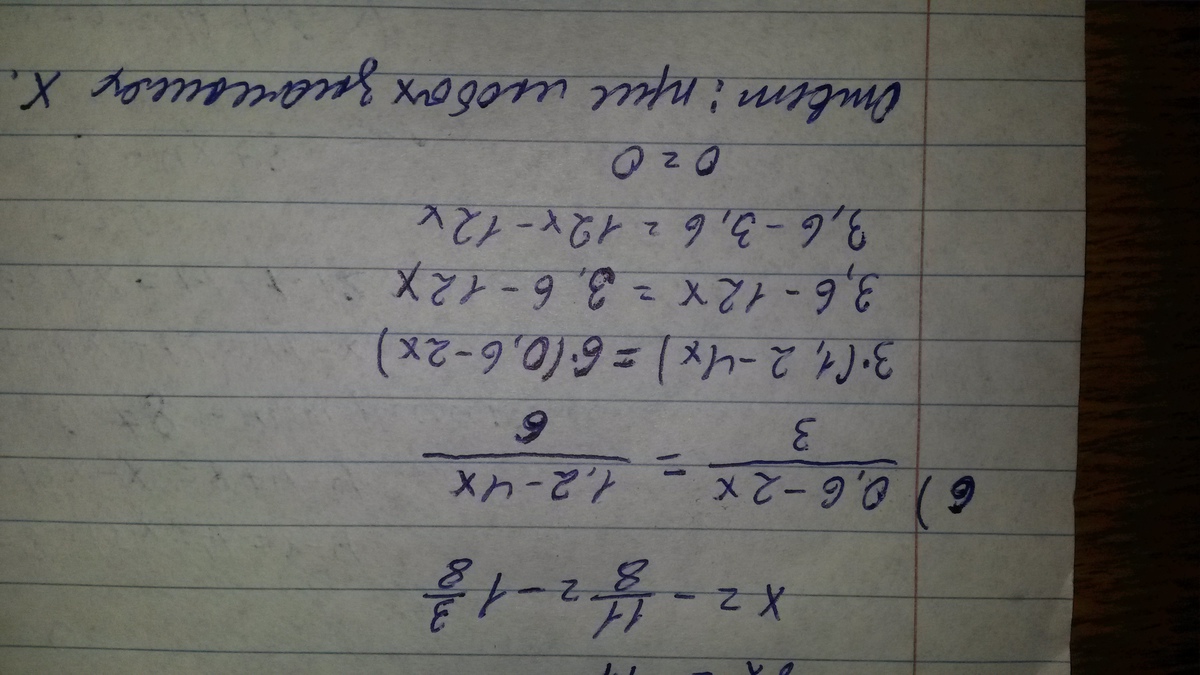 x = - 11/8 = - 1 3/8
в) 0,6-2x/3 = 1,2-4x/6
3·(1,2-4x) = 6·(0,6-2x)
3,6-12x = 3,6-12x
3,6-3,6 = 12x-12x
0=0
Ответ: при любых значениях x.